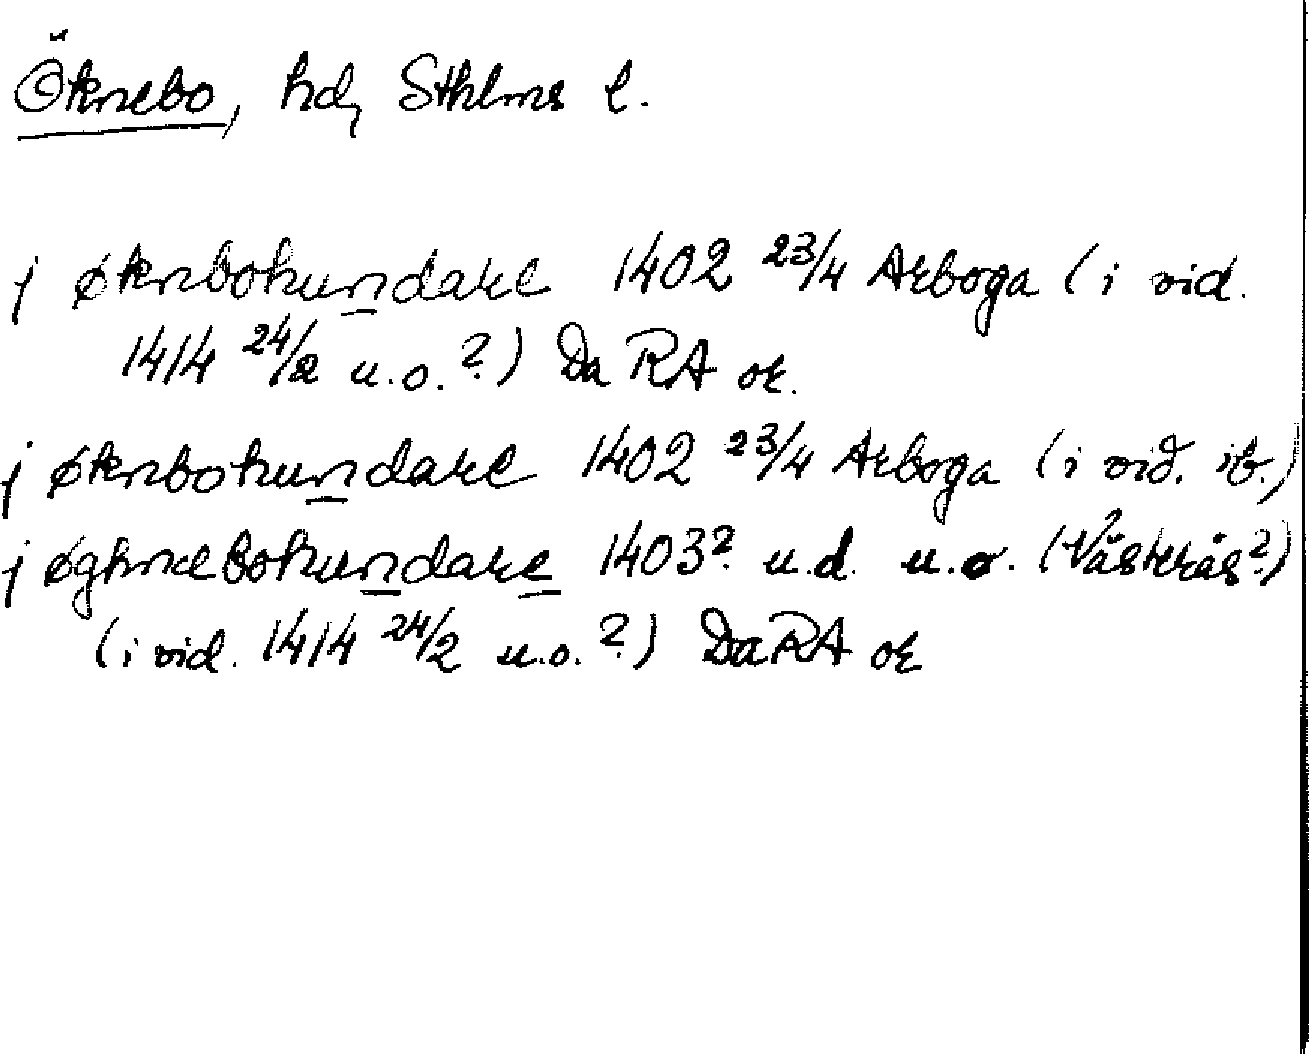 Öknebo, hd, Sthlms l.
j øknbohundare 1402 23/4 Arboga (i vid.
1414 24/2 u.o.?) Da RA or.
j øknbohundare 1402 23/4 Arboga (i vid. ib.)
j øghnæbohundare 1403? u.d. u.o. (Västerås?)
(i vid. 1414 24/2 u.o.?) DaRA or